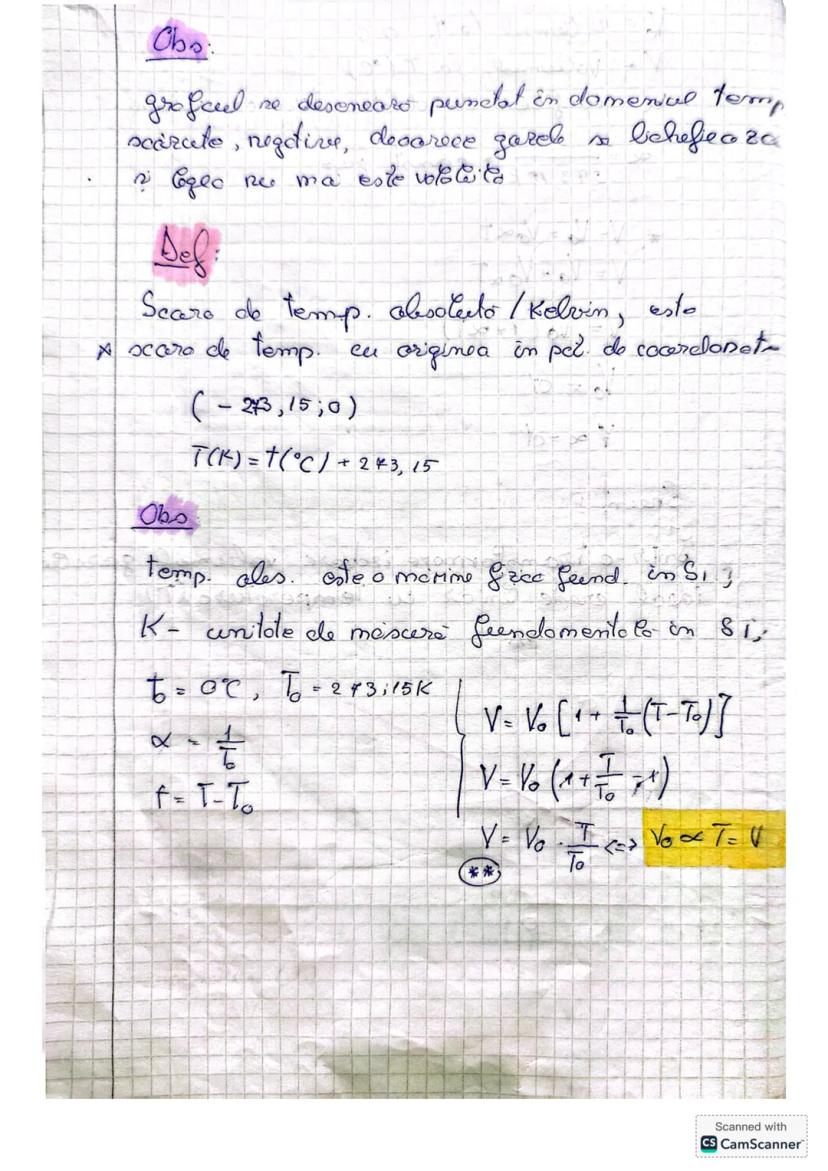 Obs:
graficul se desenează punctat în domeniul temp
scăzute, negative, deoarece gazele se lichefiază
și legea nu mai este valabilă
Def:
Scara de temp. absolută / Kelvin, este
* scara de temp. cu originea în pct. de coordonate
(-273,15;0)
T(K) = t(°C) + 273,15
Obs
temp. abs. este o mărime fizică fund. în Si;
K - unitate de măsură fundamentală în Si;
t₀ = 0°C, T₀ = 273,15K
V = V₀ [1 + 1/T₀ (T-T₀)]
α = 1/T₀
V = V₀ (1 + T/T₀ - 1)
t = T - T₀
V = V₀ · T/T₀ <=> V₀ α T = V
**
Scanned with
CS CamScanner